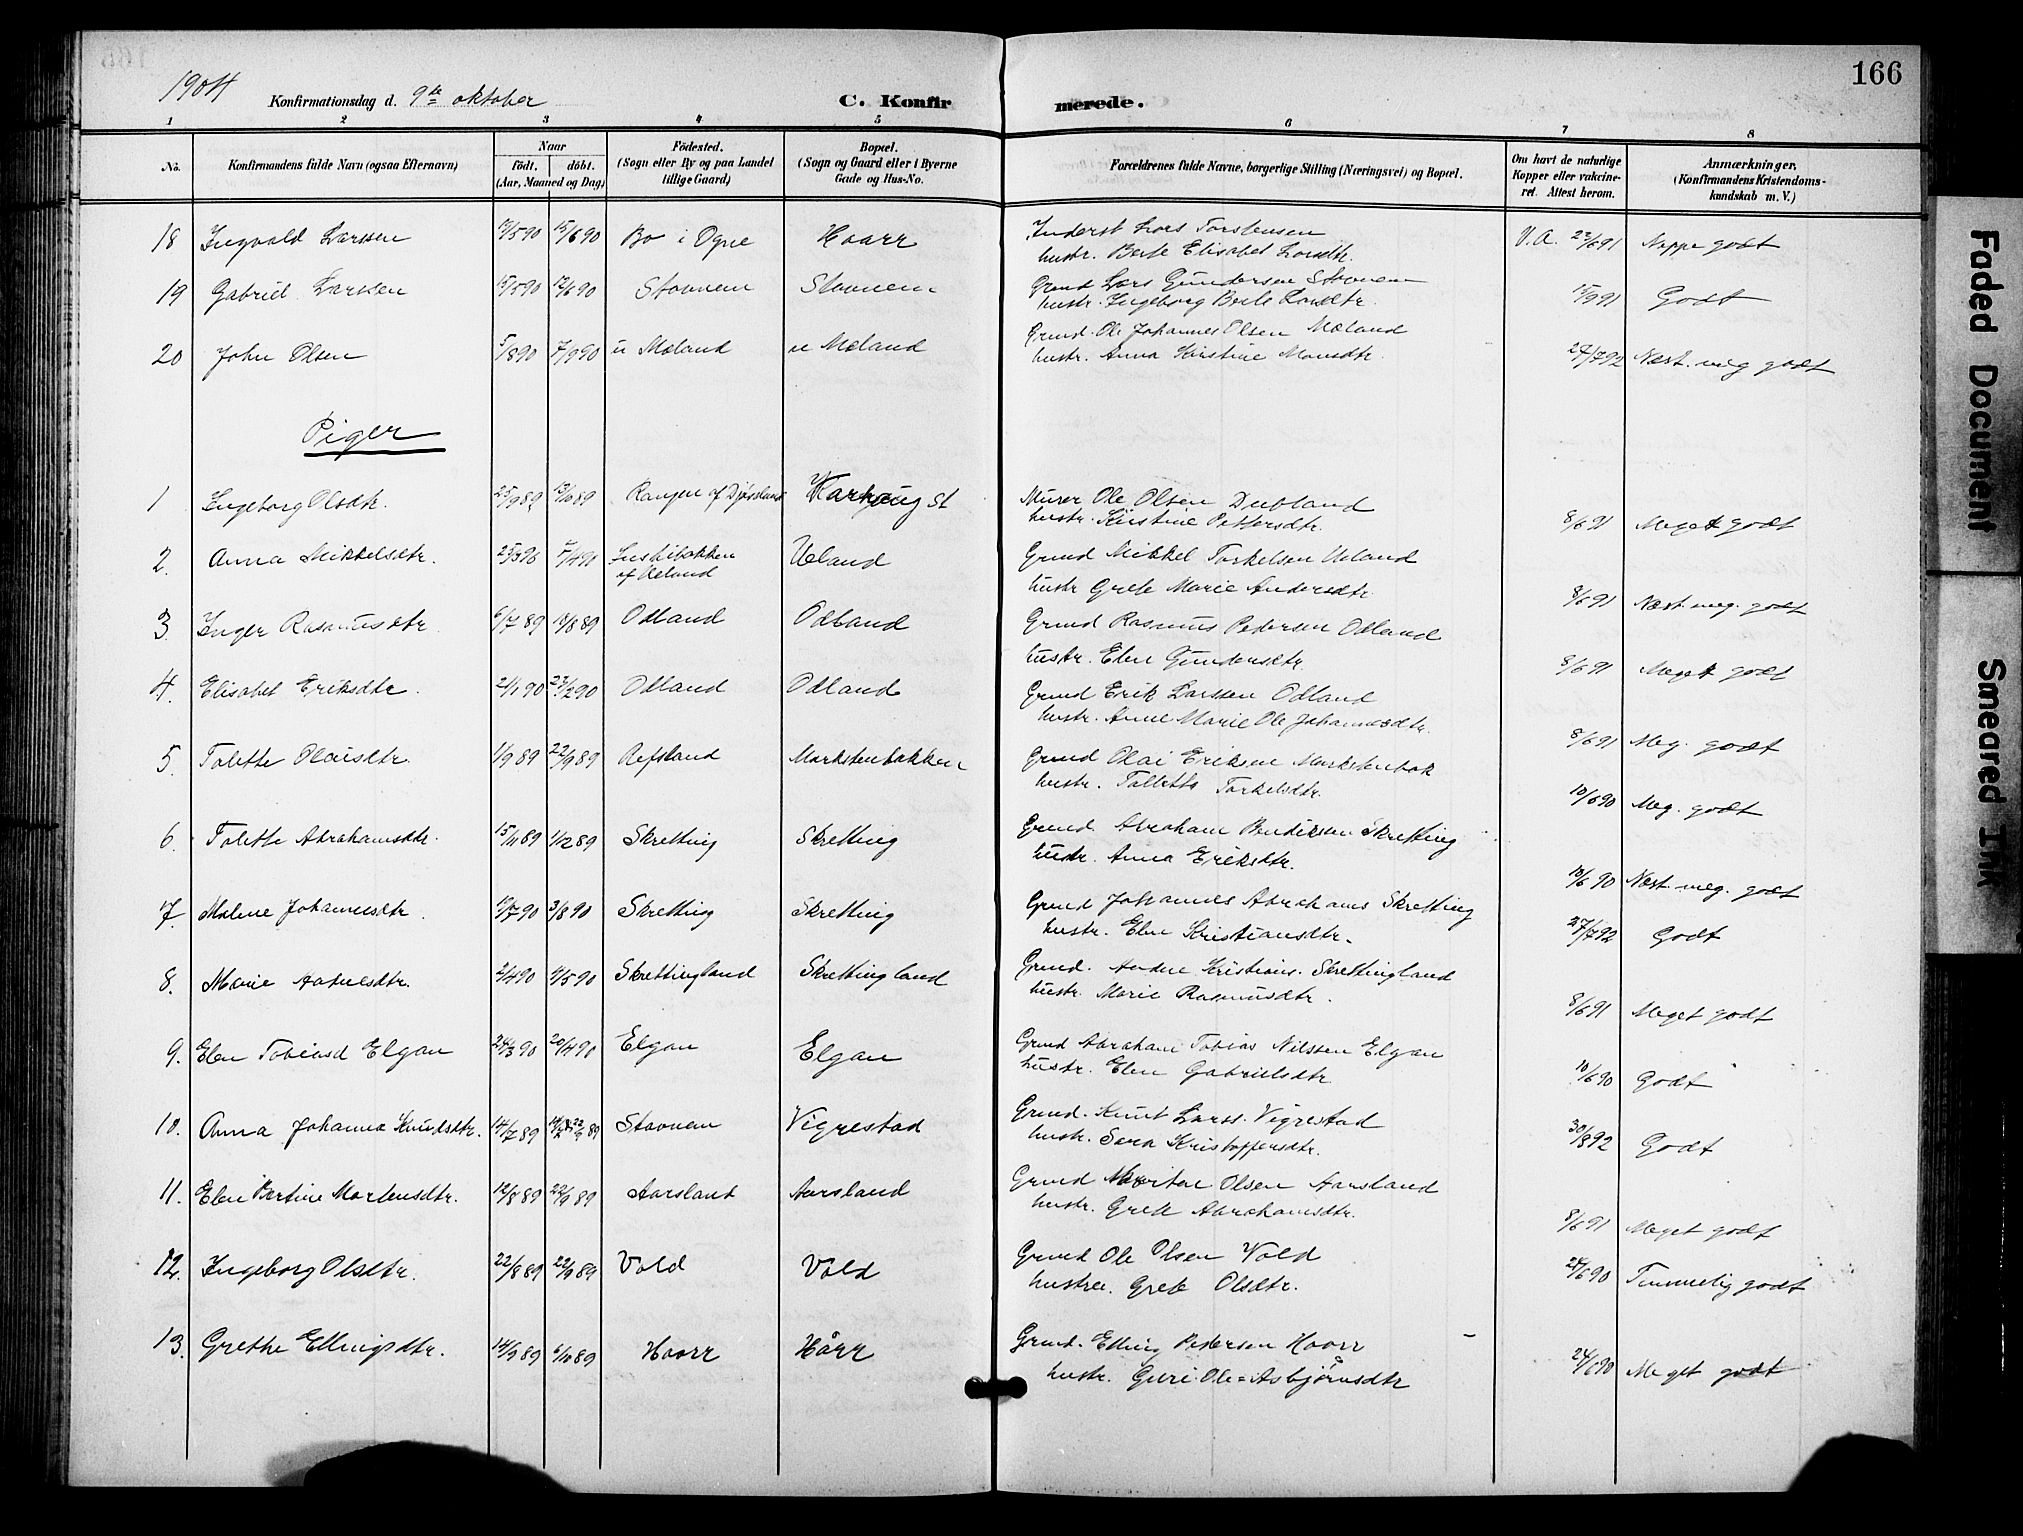 166
1904 Konfirmationsdag d. 9de oktober C. Konfirmerede.
1 2 3 4 5 6 7 8
No. Konfirmandens fulde Navn (ogsaa Efternavn) Naar født. døbt. (Aar, Maaned og Dag) Fødested. (Sogn eller By og paa Landet tillige Gaard) Bopæl. (Sogn og Gaard eller i Byerne Gade og Hus-No. Forældrenes fulde Navne, borgerlige Stilling (Næringsvei) og Bopæl. Om havt de naturlige Kopper eller vakcineret. Attest herom. Anmærkninger, (Konfirmandens Kristendomskundskab m. V.)
18 Ingvald Larssen 15/6 90 Bo i Ogne Haarr Inderst Lars Torstensen V.A. 22/6 91 Neppe godt
hustr. Berte Elisabet Larsdtr.
19 Gabriel Larssen Stavnem Stavnem Grund Lars Gundersen Stavnem 15/9 91 Godt
hustr. Ingeborg Berte Larsdtr.
20 John Olsen 5/8 90 7/9 90 Mæland Mæland Grund. Ole Johannes Olsen Mæland 27/7 92 Næst. meg godt
hustr. Anna Kirstine Monsdtr.
Piger
1 Ingeborg Olsdtr. 25/9 89 13/10 89 Varhoug St Murer Ole Olsen Dubland 8/6 91 Meget godt
hustr. Kirstine Pettersdtr.
2. Anna Mikkelsdtr. af Ueland Ueland Grund Mikkel Torkelsen Ueland
hustr Grete Marie Andersdtr. 8/6 91 Næst meg. godt
3. Inger Rasmusdtr 6/7 89 18/8 89 Odland Odland Grund Rasmus Pedersen Odland
hustr. Elen Gundersdtr. 8/6 91 Meget godt
4. Elisabet Eriksdtr. 21/1 90 23/2 90 Odland Odland Grund Erik Larssen Odland
hustr. Anne Marie Ole Johannesdtr. 8/6 91 Meg. godt
5. Tolette Olaisdtr. 1/9 89 22/9 89 Refsland Markstenbakken Grund Olai Eriksen Markstenbak
hustr. Tollette Torkelsdtr. 10/6 90 Meg. godt
6. Tolette Abrahamsdtr. 15/11 89 1/12 89 Skretting Skretting Grund. Abraham Bendiksen Skretting
hustr. Anna Eriksdtr. 10/6 90 Næst meg. godt
7. Malene Johannesdtr. 3/8 90 Skretting Skretting Grund Johannes Abrahams Skretting
hustr. Elen Kristiansdtr. 27/7 92 Godt
8. Marie Andersdtr. 2/4 90 4/5 90 Skrettingland Skrettingland Grund. Anders Kristians. Skrettingland
hustr. Marie Rasmusdtr. 8/6 91 Meget godt
9. Elen Tobiasd Elgan 24/3 90 20/4 90 Elgan Elgan Grund Abraham Tobias Nilssen Elgan
hustr. Elen Gabrielsdtr 10/6 90 Godt
10. Anna Johanna Knudsdtr. 14/7 89 Stavnem Vigrestad Grund. Knut Larss. Vigrestad
hustr. Sara Kristoffersdtr. 30/8 92 Godt
11. Elen Bertine Mortensdtr. 12/8 89 22/9 89 Aarsland Aarsland Grund Morten Olsen Aarsland
hustr. Grete Abrahamsdtr. 8/6 91 Meget godt
12. Ingeborg Olsdtr. 22/8 89 22/9 89 Vold Vold Grund Ole Olsen Vold
hustru. Grete Olsdtr. 24/6 90 Temmelig godt
13. Grethe Ellingsdtr. 14/9 89 6/10 89 Haarr Hårr Grund. Elling Pedersen Haarr
hustr. Guri Ole=Asbjørnsdtr 24/6 90 Meget godt
Faded Document
Smeared Ink